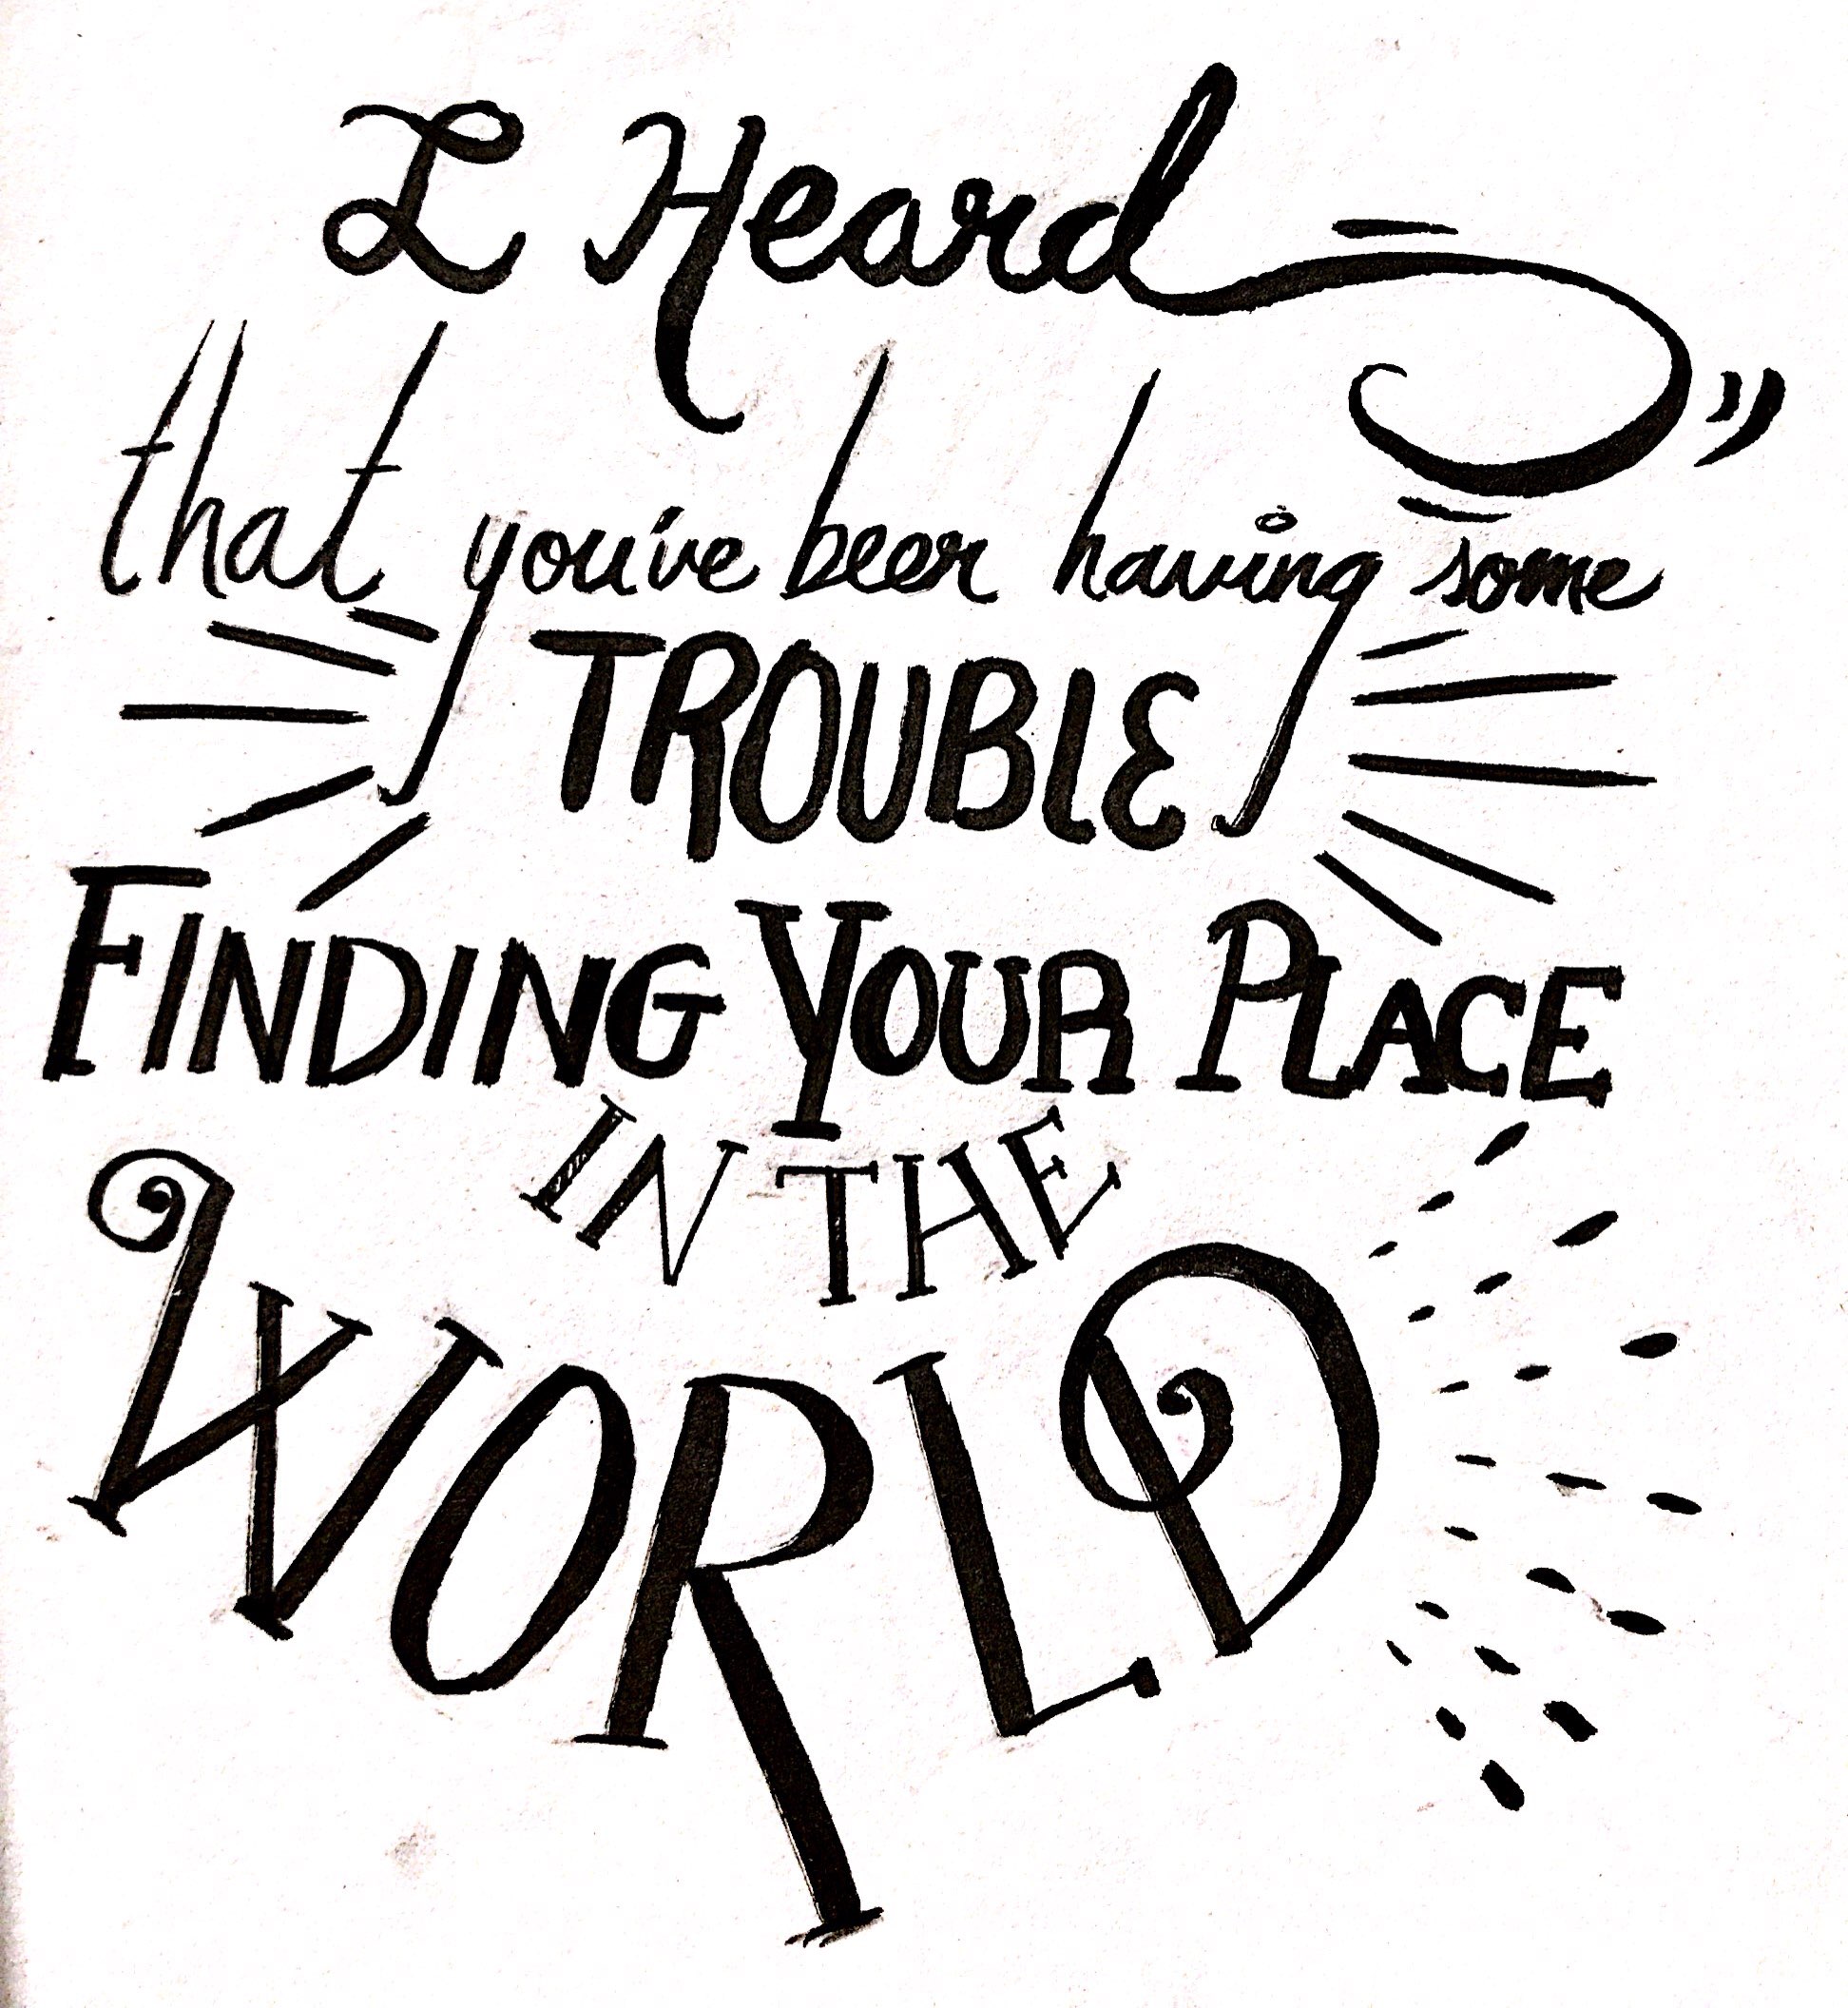 I Heard
that you've been having some
TROUBLE
FINDING YOUR PLACE
IN THE
WORLD